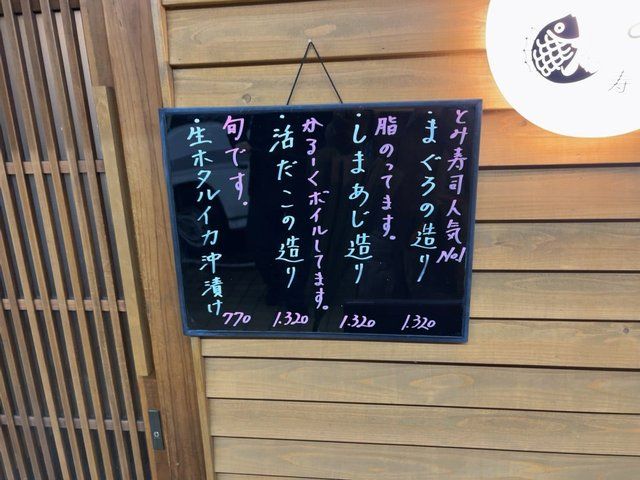 とみ寿司人気No.1
・まぐろの造り 1.320
脂のってます。
・しまあじ造り 1.320
かるーくボイルしてます。
・活だこの造り 1.320
旬です。
・生ホタルイカ沖漬け 770
寿